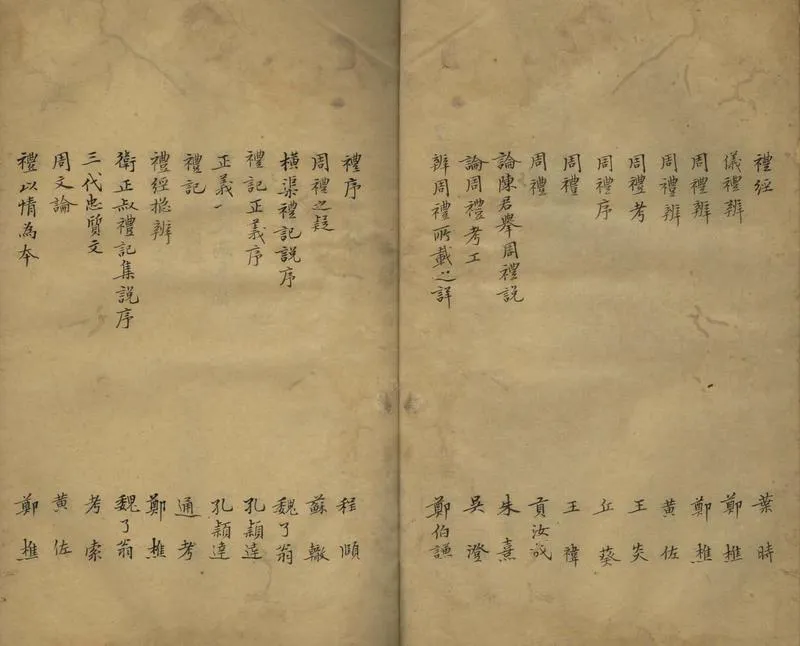 禮經 葉時
儀禮辨 鄭樵
周禮辨 鄭樵
周禮辨 黃佐
周禮考 王炎
周禮序 丘葵
周禮 王禕
周禮 貢汝成
論陳君舉周禮說 朱熹
論周禮考工 吳澄
辨周禮所載之詳 鄭伯謙
禮序 程頤
周禮之疑 蘇轍
橫渠禮記說序 魏了翁
禮記正義序 孔穎達
正義一 孔穎達
禮記 通考
禮經總辨 鄭樵
衛正叔禮記集說序 魏了翁
三代忠質文 考索
周文論 黃佐
禮以情為本 鄭樵